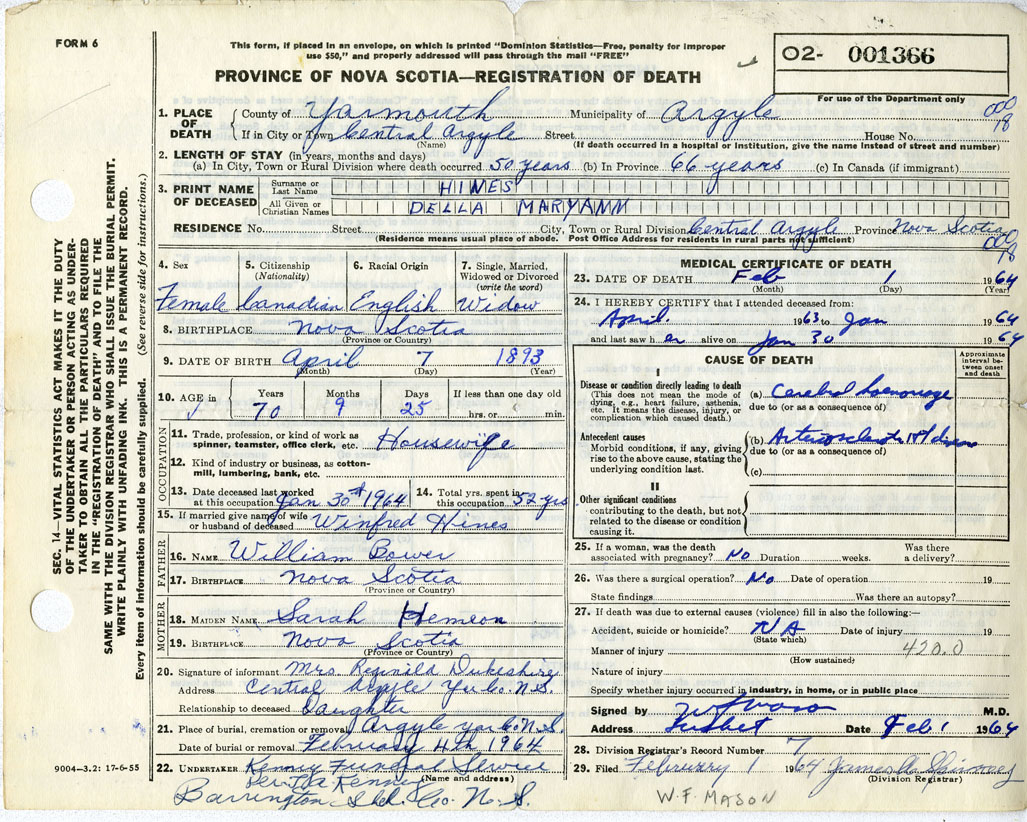 FORM 6
This form, if placed in an envelope, on which is printed "Dominion Statistics—Free, penalty for improper
use $50," and properly addressed will pass through the mail "FREE"
PROVINCE OF NOVA SCOTIA—REGISTRATION OF DEATH
O2- 001366
For use of the Department only
1. PLACE OF DEATH County of Yarmouth Municipality of Argyle
If in City or Town Central Argyle Street House No.
(Name) (If death occurred in a hospital or institution, give the name instead of street and number)
2. LENGTH OF STAY (in years, months and days)
(a) In City, Town or Rural Division where death occurred 50 years (b) In Province 66 years (c) In Canada (if immigrant)
3. PRINT NAME OF DECEASED
Surname or Last Name HINES
All Given or Christian Names DELLA MARYANN
RESIDENCE No. Street City, Town or Rural Division Central Argyle Province Nova Scotia
(Residence means usual place of abode. Post Office Address for residents in rural parts not sufficient)
4. Sex 5. Citizenship (Nationality) 6. Racial Origin 7. Single, Married, Widowed or Divorced (write the word)
Female Canadian English Widow
8. BIRTHPLACE Nova Scotia
(Province or Country)
9. DATE OF BIRTH April 7 1893
(Month) (Day) (Year)
10. AGE in Years Months Days If less than one day old
70 9 25 hrs. or min.
OCCUPATION
11. Trade, profession, or kind of work as spinner, teamster, office clerk, etc. Housewife
12. Kind of industry or business, as cotton-mill, lumbering, bank, etc.
13. Date deceased last worked at this occupation Jan 30st 1964 14. Total yrs. spent in this occupation 52 yrs
15. If married give name of wife or husband of deceased Winfred Hines
FATHER
16. NAME William Bower
17. BIRTHPLACE Nova Scotia
(Province or Country)
MOTHER
18. MAIDEN NAME Sarah Hemeon
19. BIRTHPLACE Nova Scotia
(Province or Country)
20. Signature of informant Mrs. Reginild Dukeshire
Address Central Argyle Yar Co. N.S.
Relationship to deceased Daughter
21. Place of burial, cremation or removal Argyle Yar Co. N.S.
Date of burial or removal February 4th 1964
22. UNDERTAKER Kenny Funeral Service
(Name and address)
Barrington Shel. Co. N.S.
MEDICAL CERTIFICATE OF DEATH
23. DATE OF DEATH Feb 1 1964
(Month) (Day) (Year)
24. I HEREBY CERTIFY that I attended deceased from:
April 1963 to Jan 1964
and last saw her alive on Jan 30 1964
CAUSE OF DEATH
Approximate interval between onset and death
I
Disease or condition directly leading to death
(This does not mean the mode of dying, e.g., heart failure, asthenia, etc. It means the disease, injury, or complication which caused death.)
(a)
due to (or as a consequence of)
Antecedent causes
Morbid conditions, if any, giving rise to the above cause, stating the underlying condition last.
(b)
due to (or as a consequence of)
(c)
II
Other significant conditions
contributing to the death, but not related to the disease or condition causing it.
25. If a woman, was the death associated with pregnancy? No Duration weeks. Was there a delivery?
26. Was there a surgical operation? No Date of operation 19
State findings Was there an autopsy?
27. If death was due to external causes (violence) fill in also the following:—
Accident, suicide or homicide? N/A Date of injury 19
(State which)
Manner of injury 420.0
(How sustained)
Nature of injury
Specify whether injury occurred in industry, in home, or in public place
Signed by W F Mason M.D.
Address Tusket Date Feb 1 1964
28. Division Registrar's Record Number 7
29. Filed February 1 1964
(Division Registrar)
W.F. MASON
SEC. 14—VITAL STATISTICS ACT MAKES IT THE DUTY
OF THE UNDERTAKER OR PERSON ACTING AS UNDER-
TAKER TO OBTAIN ALL THE PARTICULARS REQUIRED
IN THE "REGISTRATION OF DEATH" AND TO FILE THE
SAME WITH THE DIVISION REGISTRAR WHO SHALL ISSUE THE BURIAL PERMIT.
WRITE PLAINLY WITH UNFADING INK. THIS IS A PERMANENT RECORD.
Every item of information should be carefully supplied. (See reverse side for instructions.)
9004-3.2: 17-6-55